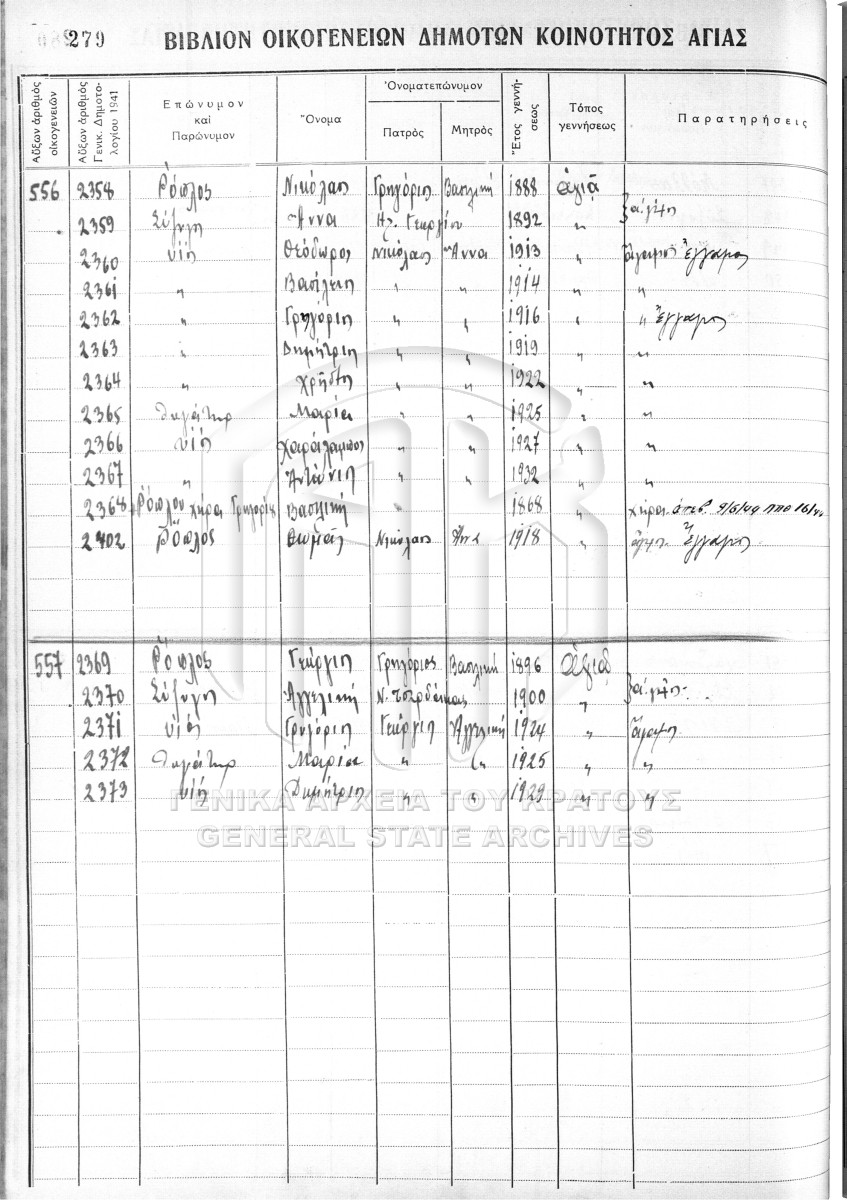 279 ΒΙΒΛΙΟΝ ΟΙΚΟΓΕΝΕΙΩΝ ΔΗΜΟΤΩΝ ΚΟΙΝΟΤΗΤΟΣ ΑΓΙΑΣ
Αὔξων ἀριθμὸς οἰκογενειῶν
Αὔξων ἀριθμὸς Γενικ. Δημοτολογίου 1941
Ἐπώνυμον καὶ Παρώνυμον
Ὄνομα
Ὀνοματεπώνυμον
Πατρὸς
Μητρὸς
Ἔτος γεννήσεως
Τόπος γεννήσεως
Παρατηρήσεις
556 2358 Ρόπλος Νικόλαος Γρηγόριος Βασιλική 1888 Ἁγιᾶ
2359 Σύζυγος Ἄννα Γεωργίου 1892 "
2360 υἱός Θεόδωρος Νικόλαος Ἄννα 1913 " ἄγαμος Ἔγγαμος
2361 " Βασίλειος " " 1914 " "
2362 " Γρηγόριος " " 1916 " " Ἔγγαμος
2363 " Δημήτριος " " 1919 " "
2364 " Χρῆστος " " 1922 " "
2365 θυγάτηρ Μαρία " " 1925 " "
2366 υἱός Χαράλαμπος " " 1927 " "
2367 " Ἀντώνιος " " 1932 " "
2368 Ρόπλου χήρα Γρηγορίου Βασιλική " 1868 " χήρα ἀπεβ. 9/5/49
2402 Ρόπλος Θωμᾶς Νικόλαος Ἄννα 1918 " Ἔγγαμος
557 2369 Ρόπλος Γεώργιος Γρηγόριος Βασιλική 1896 Ἁγιᾶ
2370 Σύζυγος Ἀγγελική 1900 "
2371 υἱός Γρηγόριος Γεώργιος Ἀγγελική 1924 " ἄγαμος
2372 θυγάτηρ Μαρία " " 1925 " "
2373 υἱός Δημήτριος " " 1929 " "
ΓΕΝΙΚΑ ΑΡΧΕΙΑ ΤΟΥ ΚΡΑΤΟΥΣ
GENERAL STATE ARCHIVES